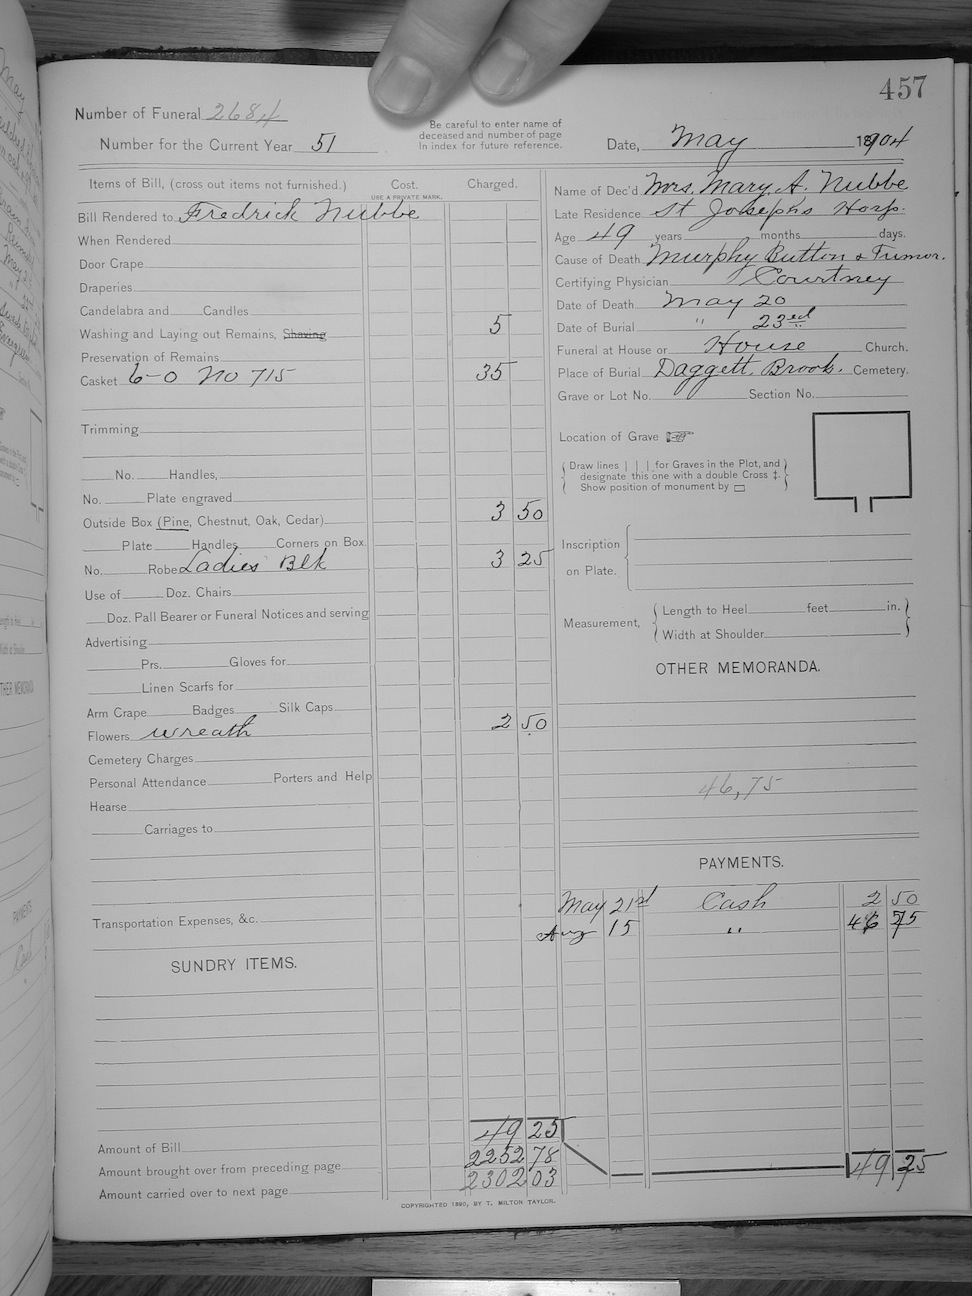 457
Number of Funeral 2684
Number for the Current Year 51
Be careful to enter name of
deceased and number of page
in index for future reference.
Date, May 1904
Items of Bill, (cross out items not furnished.) Cost. Charged.
USE A PRIVATE MARK.
Bill Rendered to Fredrick Nubbe
When Rendered
Door Crape
Draperies
Candelabra and Candles
Washing and Laying out Remains, Shaving 5
Preservation of Remains
Casket 6-0 No 715 35
Trimming
No. Handles,
No. Plate engraved
Outside Box (Pine, Chestnut, Oak, Cedar) 3 50
Plate Handles Corners on Box.
No. Robe Ladies Blk 3 25
Use of Doz. Chairs
Doz. Pall Bearer or Funeral Notices and serving
Advertising
Prs. Gloves for
Linen Scarfs for
Arm Crape Badges Silk Caps
Flowers wreath 2 50
Cemetery Charges
Personal Attendance Porters and Help
Hearse
Carriages to
Transportation Expenses, &c.
SUNDRY ITEMS.
Amount of Bill 49 25
Amount brought over from preceding page 2252 78
Amount carried over to next page 2302 03
COPYRIGHTED 1890, BY T. MILTON TAYLOR.
Name of Dec'd Mrs. Mary A. Nubbe
Late Residence St Josephs Hosp.
Age 49 years months days.
Cause of Death Murphy Button & Tumor.
Certifying Physician Courtney
Date of Death May 20
Date of Burial " 23rd
Funeral at House or House Church.
Place of Burial Daggett Brook. Cemetery.
Grave or Lot No. Section No.
Location of Grave ☞
Draw lines | | | for Graves in the Plot, and
designate this one with a double Cross ‡.
Show position of monument by ▭
Inscription
on Plate.
Measurement,
Length to Heel feet in.
Width at Shoulder
OTHER MEMORANDA.
46,75
PAYMENTS.
May 21st Cash 2 50
Aug 15 " 46 75
49 25